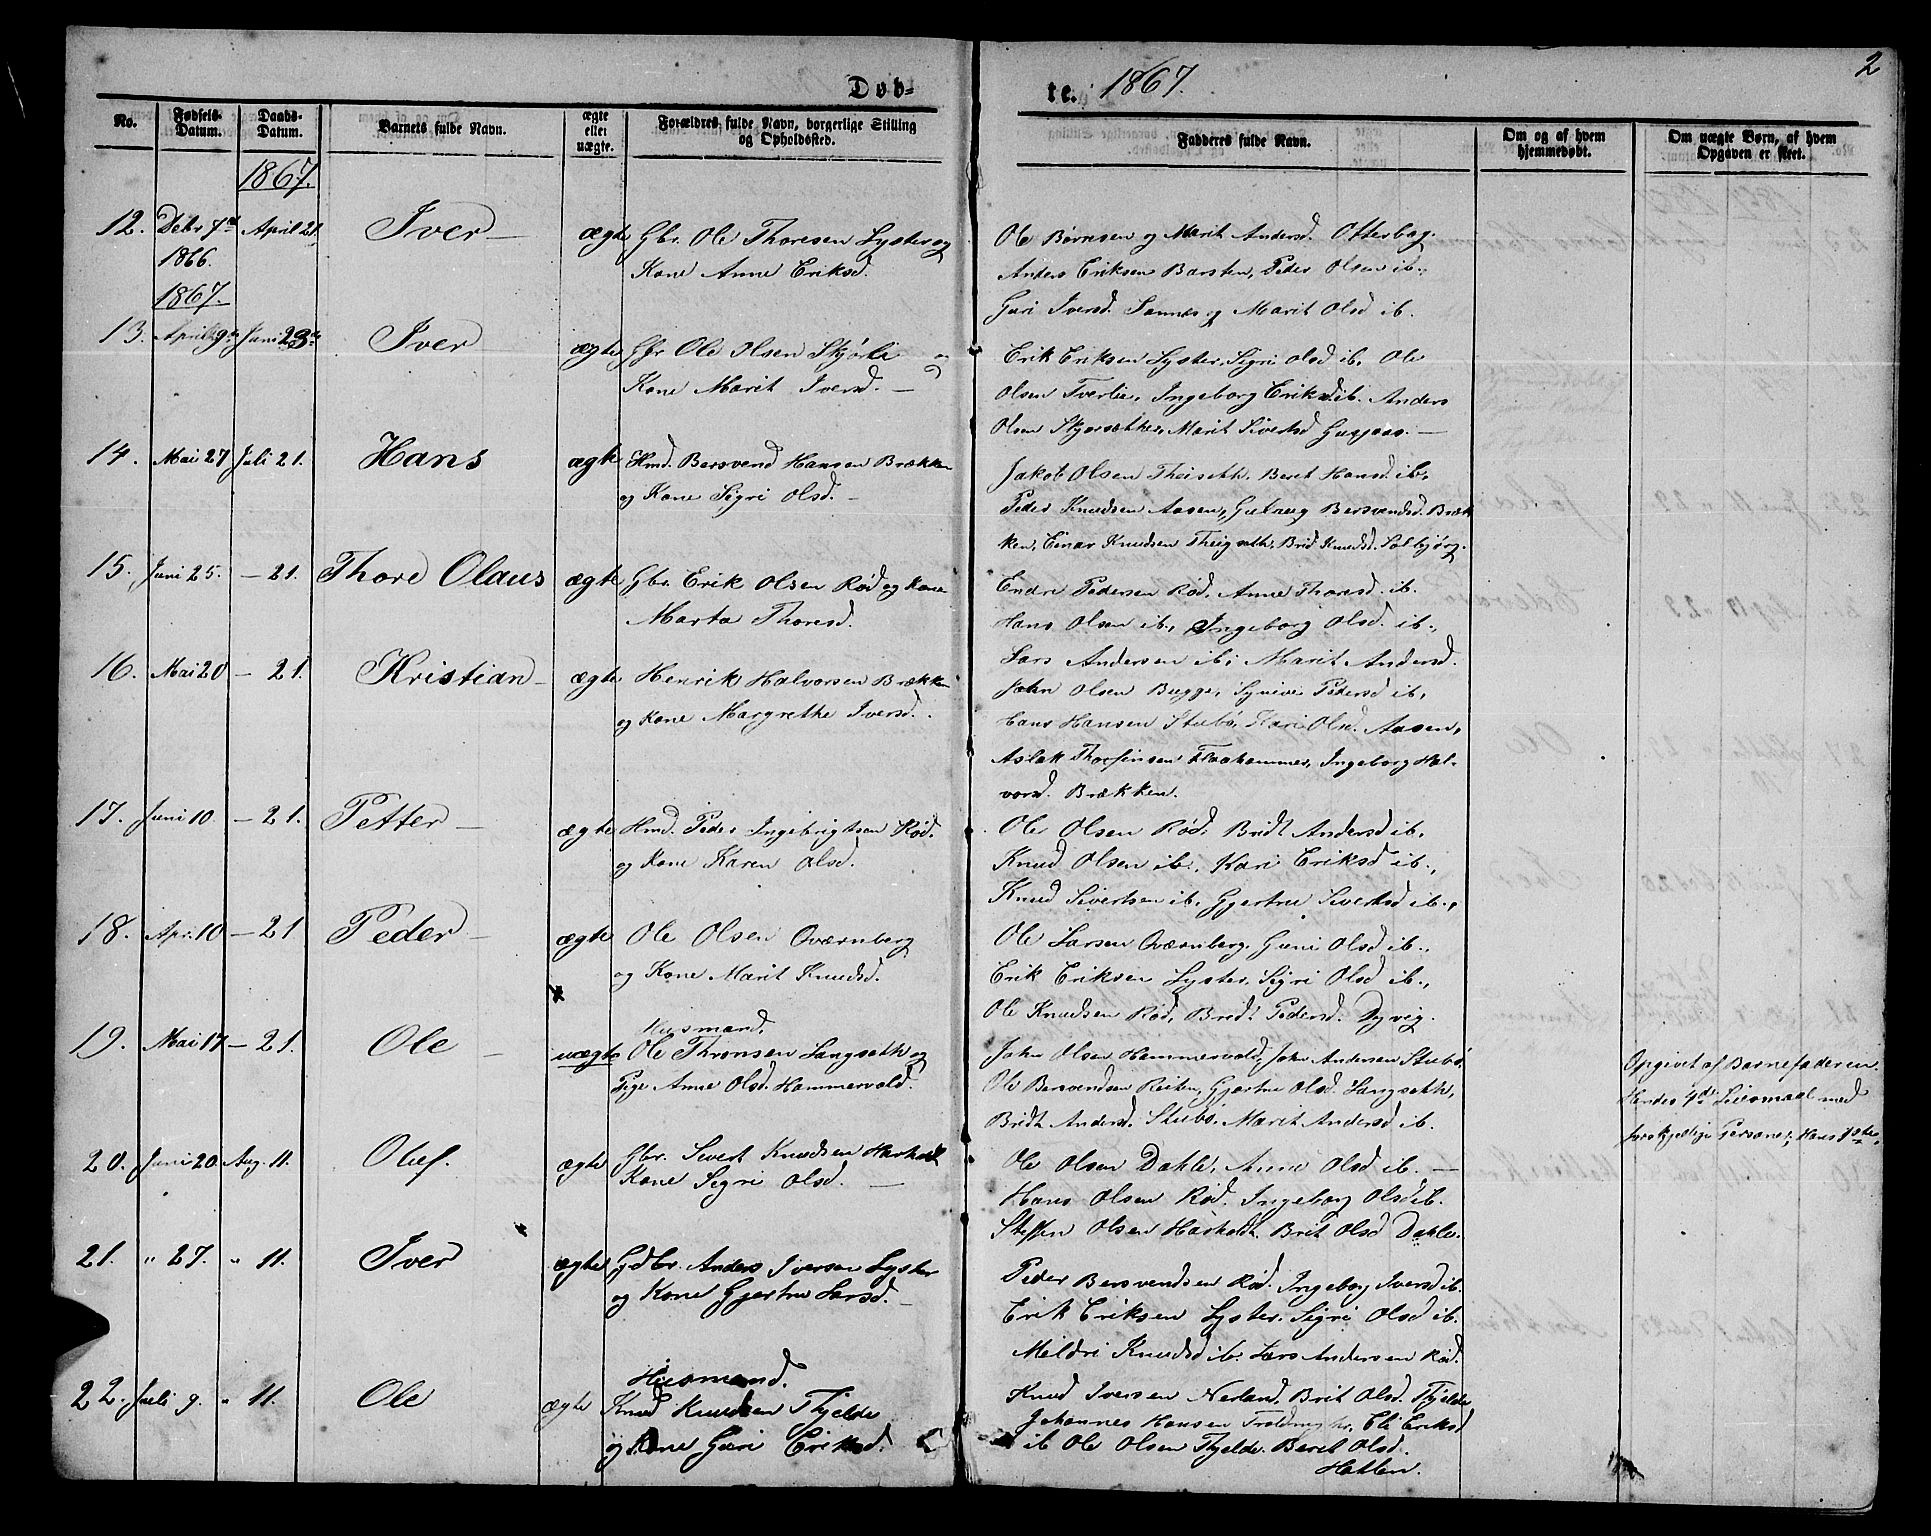 Døb-
te. 1867.
2
No.
Fødsels-Datum.
Daabs-Datum.
Barnets fulde Navn.
ægte eller uægte.
Forældres fulde Navn, borgerlige Stilling og Opholdssted.
Faddernes fulde Navn.
Om og af hvem hjemmedøbt.
Om uægte Børn, af hvem Opgaven er skeet.
1867.
12. Debr 7de 1866. April 21. Iver ægte Gbr. Ole Thoresen Lyster og
Kone Anne Eriksd.
Ole Børnsen og Marit Andersd. Otterbag.
Anders Eriksen Barsten, Peder Olsen ib.,
Guri Iversd. Sannes og Marit Olsd ib.
1867.
13. April 9de Juni 23de Iver ægte Gbr Ole Olsen Skjørli og
Kone Marit Iversd.
Erik Eriksen Lyster, Sigri Olsd ib. Ole
Olsen Tverlie, Ingeborg Eriksd. ib. Anders
Olsen Skjørsetter, Marit Sivertsd
14. Mai 27 Juli 21. Hans ægte Hmd. Bersvend Hansen Brækken
og Kone Sigri Olsd.
Jakob Olsen Theiseth. Beret Hansd ib.,
Peder Knudsen Aasen, Bersvendsd. Bræk
ken, Einar Knudsen Brid Knudsd. Solbjørg.
15. Juni 25. - 21. Thore Olaus ægte Gbr. Erik Olsen Rød og Kone
Marta Thoresd.
Endre Pedersen Rød, Anne Thoresd. ib.
Hans Olsen ib., Ingeborg Olsd. ib.,
Lars Andersen ib; Marit Andersd.
16. Mai 20 - 21. Kristian ægte Henrik Halvorsen Brækken
og Kone Margrethe Iversd.
John Olsen Bugge, Synive Pedersd ib.
Hans Hansen Stubø, Kari Olsd. Aasen,
Aslak Thorfinsen Flaahammer, Ingeborg Hal-
vorsd. Brækken.
17. Juni 10. - 21. Petter ægte Hmd. Peder Ingebrigtsen Rød.
og Kone Karen Olsd.
Ole Olsen Rød, Bridt Andersd ib.
Knud Olsen ib., Kari Eriksd ib.,
Knud Sivertsen ib. Gjertru Sivertsd ib.,
18. Apr. 10 - 21 Peder ægte Ole Olsen Qværnberg
og Kone Marit Knudsd.
Ole Larsen Qværnberg. Guni Olsd ib.,
Erik Eriksen Lyster. Sigri Olsd ib.,
Ole Knudsen Rød, Bridt Pedersd. Dyvig.
19. Mai 17 - 21. Ole uægte Husmand.
Ole Thronsen Langseth og
Pige Anne Olsd. Hammervold.
John Olsen Hammervold, John Andersen Stubø,
Ole Bersvendsen Reiten, Gjertru Olsd. Langseth,
Bridt Andersd. Stubø. Marit Andersd ib.
Opgivet af Barnefaderen.
Hendes 4de Leiermaal med
forskjellige Personer; Hans 1ste.
20. Juni 20. Aug. 11. Oluf. ægte Gbr. Sivert Knudsen Harholt
Kone Sigri Olsd.
Ole Olsen Dahle, Anne Olsd ib.
Hans Olsen Rød. Ingeborg Olsd ib.
Steffen Olsen Harholdt. Brit Olsd Dahle.
21. " 27. " 11. Iver ægte Gdbr. Anders Iversen Lyster
og Kone Gjertru Larsd.
Peder Bersvendsen Rød. Ingeborg Iversd ib.
Erik Eriksen Lyster. Sigri Olsd ib.
Meldri Knudsd ib. Lars Andersen Rød.
22. Juli 9. " 11. Ole ægte Husmand.
Knud Knudsen Thjelde
og Kone Guri Eriksd.
Knud Iversen Nerland. Brit Olsd. Thjelde
Johannes Hansen Eli Eriksd
ib Ole Olsen Thjelde. Beret Olsd.
Hatlen.